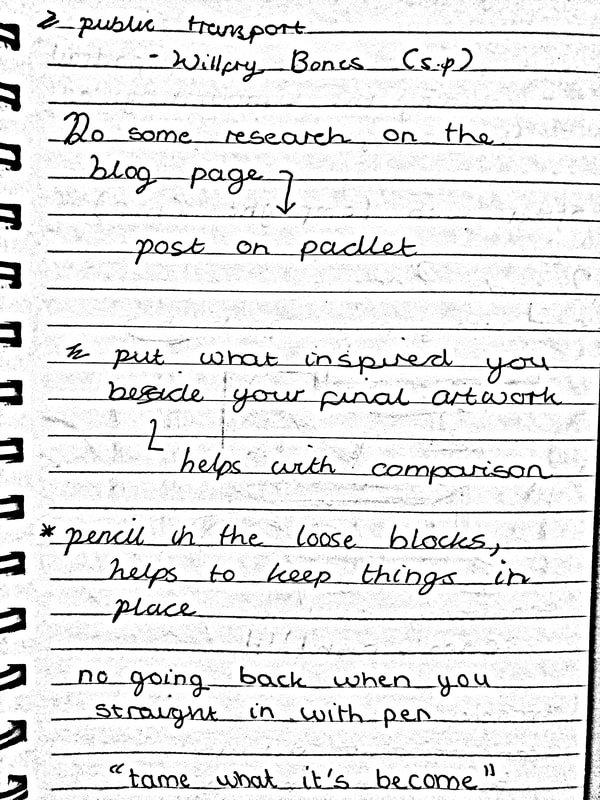 public transport
- Willfry Bones (s.p)
Do some research on the
blog page
post on padlet
put what inspired you
beside your final artwork
helps with comparison
* pencil in the loose blocks,
helps to keep things in
place
no going back when you
straight in with pen
"tame what it's become"